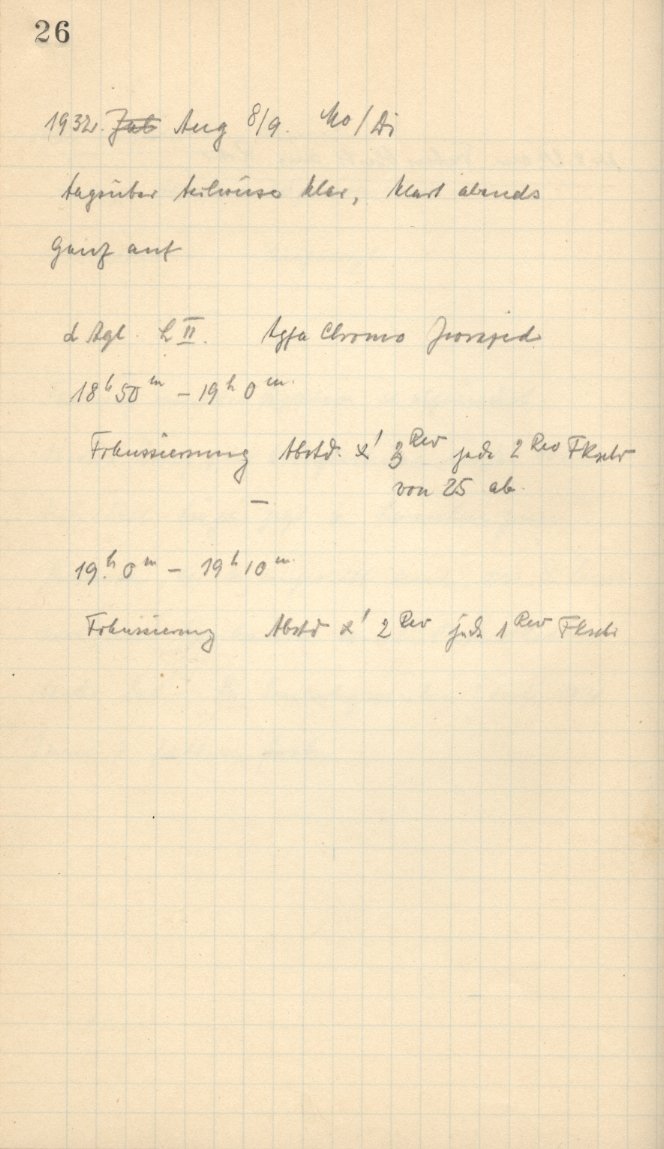 26
1932. Aug 8/9. Mo/Di
tagsüber teilweise klar, klart abends
ganz auf
α Aql. L II. Agfa Chromo Isorapid
18h 50m – 19h 0m
Fokussierung Abstd. α' 3 Rev jede 2 Rev FKschr
von 25 ab.
–
19h 0m – 19h 10m
Fokussierung Abstd α' 2 Rev jede 1 Rev FKschr